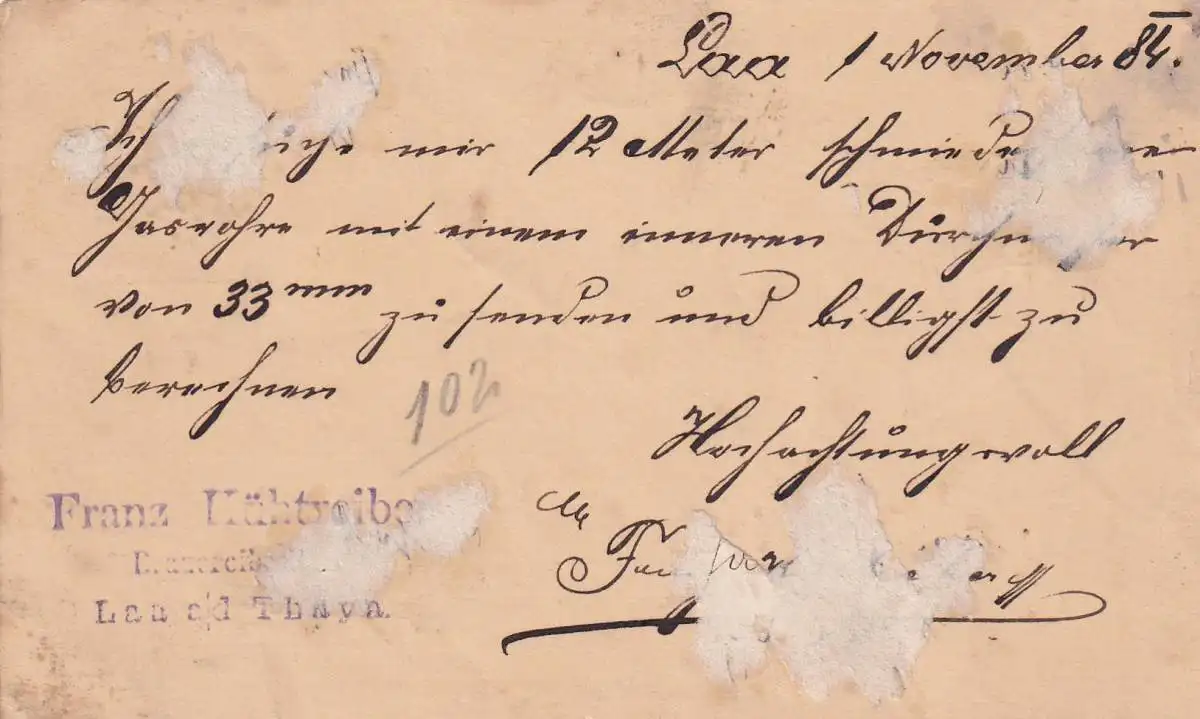 Laa 1 November 84.
Ich mir 12 Meter schmiede
Gasrohre mit einem inneren
von 33 mm zu senden und billigst zu
berechnen
102
Hochachtungsvoll
Franz
Laa a/d Thaya.